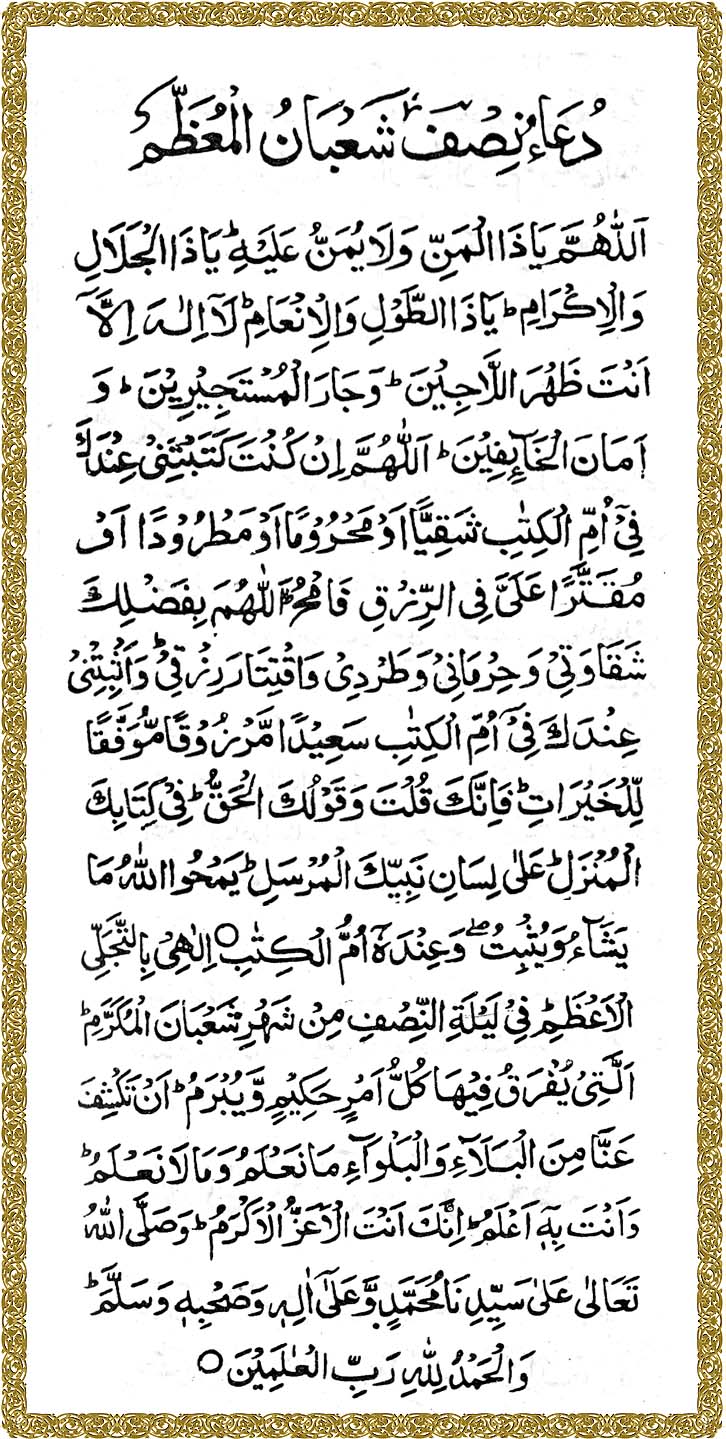 دُعَاءُ نِصْفَ شَعْبَانُ الْمُعَظَّمْ
اَللّٰهُمَّ يَاذَا الْمَنِّ وَلَا يُمَنُّ عَلَيْهِ ؕ يَاذَا الْجَلَالِ
وَالْاِكْرَامِ ؕ يَاذَا الطَّوْلِ وَالْاِنْعَامِ ؕ لَآ اِلٰهَ اِلَّآ
اَنْتَ ظَهْرَ اللَّاجِيْنَ ؕ وَجَارَ الْمُسْتَجِيْرِيْنَ ؕ وَ
اَمَانَ الْخَآئِفِيْنَ ؕ اَللّٰهُمَّ اِنْ كُنْتَ كَتَبْتَنِىْ عِنْدَكَ
فِىْٓ اُمِّ الْكِتٰبِ شَقِيًّا اَوْ مَحْرُوْمًا اَوْ مَطْرُوْدًا اَوْ
مُقَتَّرًا عَلَىَّ فِى الرِّزْقِ فَامْحُ اللّٰهُمَ بِفَضْلِكَ
شَقَاوَتِىْ وَحِرْمَانِىْ وَطَرْدِىْ وَاقْتِتَارَ رِزْقِىْ ؕ وَاَثْبِتْنِىْ
عِنْدَكَ فِىْٓ اُمِّ الْكِتٰبِ سَعِيْدًا مَّرْزُوْقًا مُّوَفَّقًا
لِّلْخَيْرَاتِ ؕ فَاِنَّكَ قُلْتَ وَقَوْلُكَ الْحَقُّ ؕ فِىْ كِتَابِكَ
الْمُنْزَلِ ؕ عَلٰى لِسَانِ نَبِيِّكَ الْمُرْسَلِ ؕ يَمْحُوا اللّٰهُ مَا
يَشَآءُ وَيُثْبِتُ ۖ وَعِنْدَهٗٓ اُمُّ الْكِتٰبِ ○ اِلٰهِىْ بِالتَّجَلِّى
الْاَعْظَمِ ؕ فِىْ لَيْلَةِ النِّصْفِ مِنْ شَهْرِ شَعْبَانَ الْمُكَرَّمِ ؕ
اَلَّتِىْ يُفْرَقُ فِيْهَا كُلُّ اَمْرٍ حَكِيْمٍ وَّيُبْرَمُ ؕ اَنْ تَكْشِفَ
عَنَّا مِنَ الْبَلَآءِ وَالْبَلْوَآءِ مَا نَعْلَمُ وَمَا لَا نَعْلَمُ ؕ
وَاَنْتَ بِهٖٓ اَعْلَمُ ؕ اِنَّكَ اَنْتَ الْاَعَزُّ الْاَكْرَمُ ؕ وَصَلَّى اللّٰهُ
تَعَالٰى عَلٰى سَيِّدِنَا مُحَمَّدٍ وَّعَلٰٓى اٰلِهٖ وَصَحْبِهٖ وَسَلَّمَ ؕ
وَالْحَمْدُ لِلّٰهِ رَبِّ الْعٰلَمِيْنَ ○